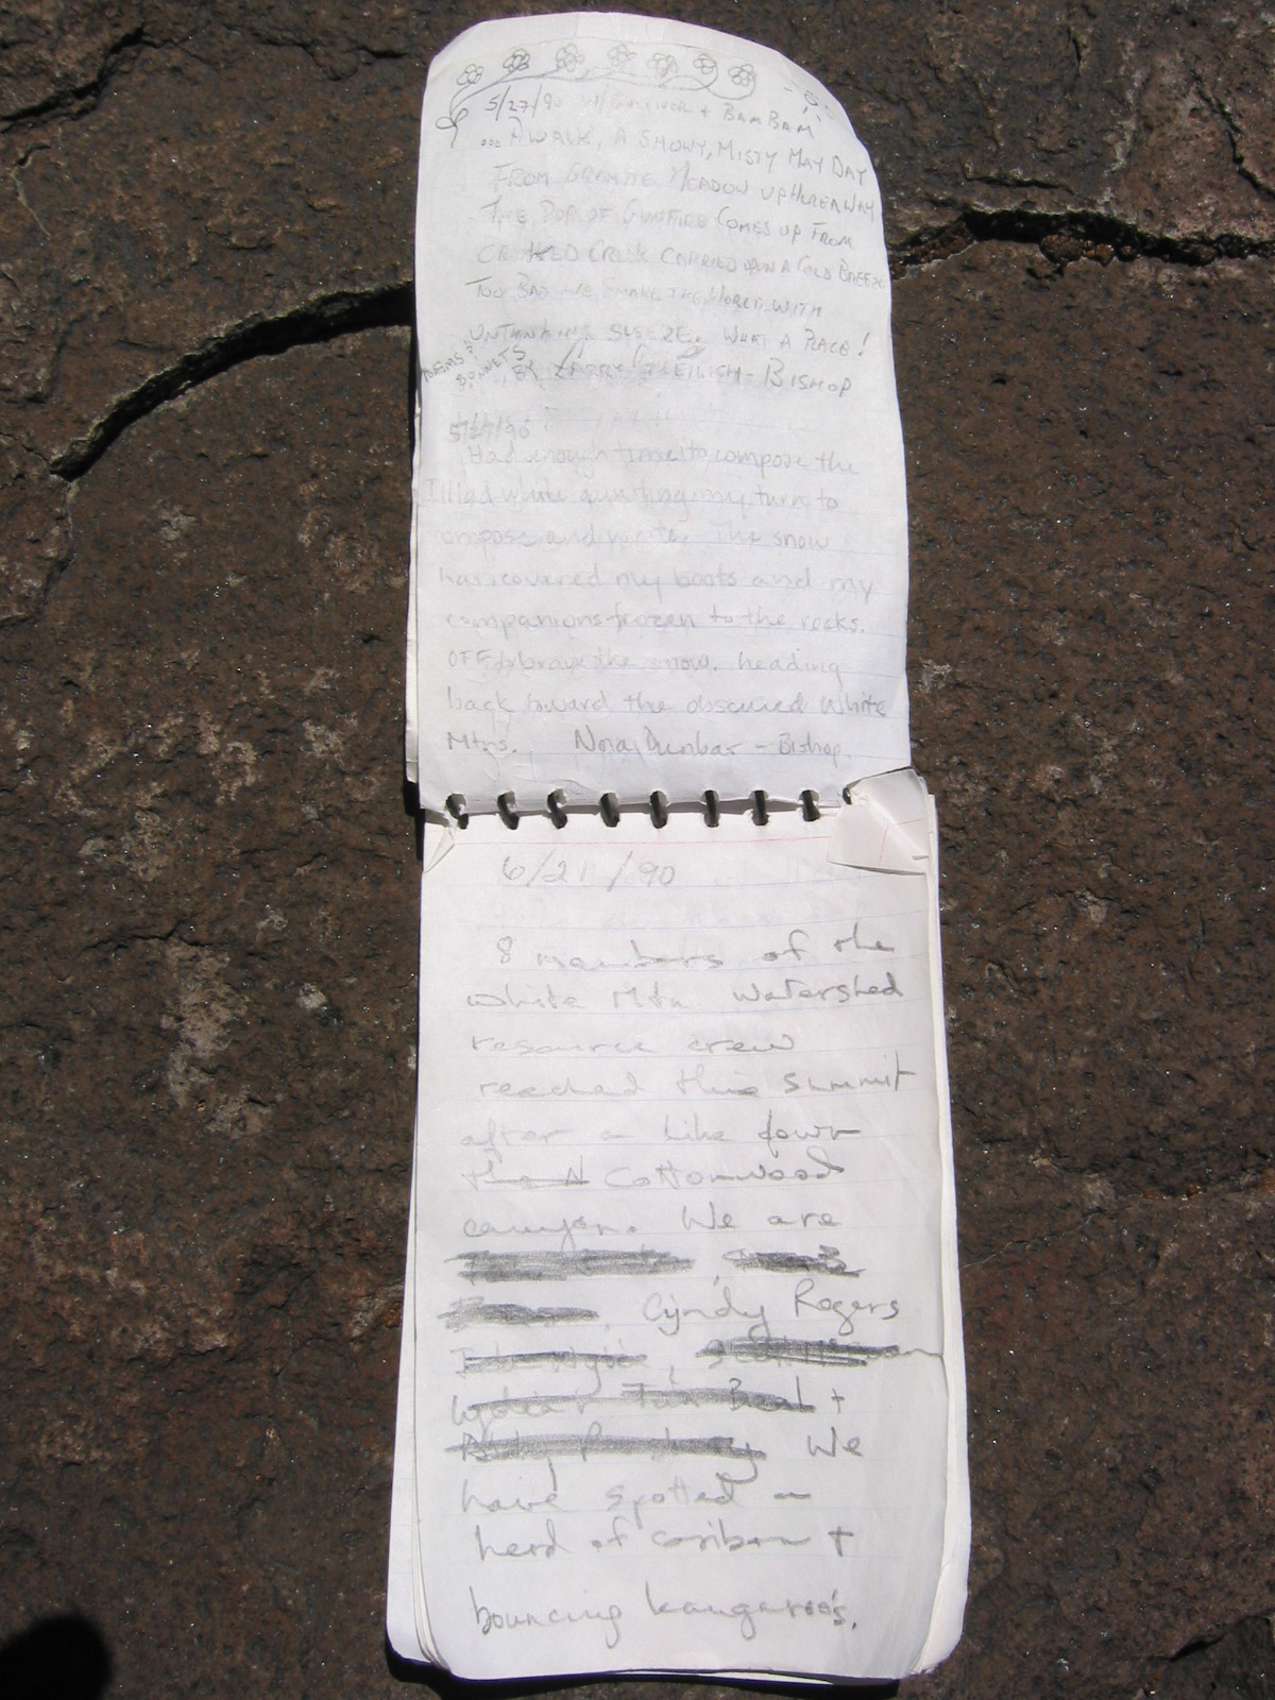 5/27/90 W/ + BAM BAM
... A WALK, A SNOWY, MISTY MAY DAY
FROM GRANITE MEADOW UP HEREAWAY
THE POP OF GUNFIRE COMES UP FROM
CROOKED CREEK CARRIED ON A COLD BREEZE
TOO BAD WE SHARE THE WORLD WITH
UNTHINKING SLEEZE. WHAT A PLACE!
POEMS &
SONNETS BY LARRY - BISHOP
5/27/90
Had enough time to compose the
Illiad while awaiting my turn to
compose and write. The snow
has covered my boots and my
companions frozen to the rocks.
OFF to brave the snow, heading
back toward the obscured White
Mtns. Nora Dunbar - Bishop.
6/21/90
8 members of the
White Mtn Watershed
resource crew
reached this summit
after a hike down
the N Cottonwood
canyon. We are
Cyndy Rogers
+
We
have spotted a
herd of caribou +
bouncing kangaroo's.